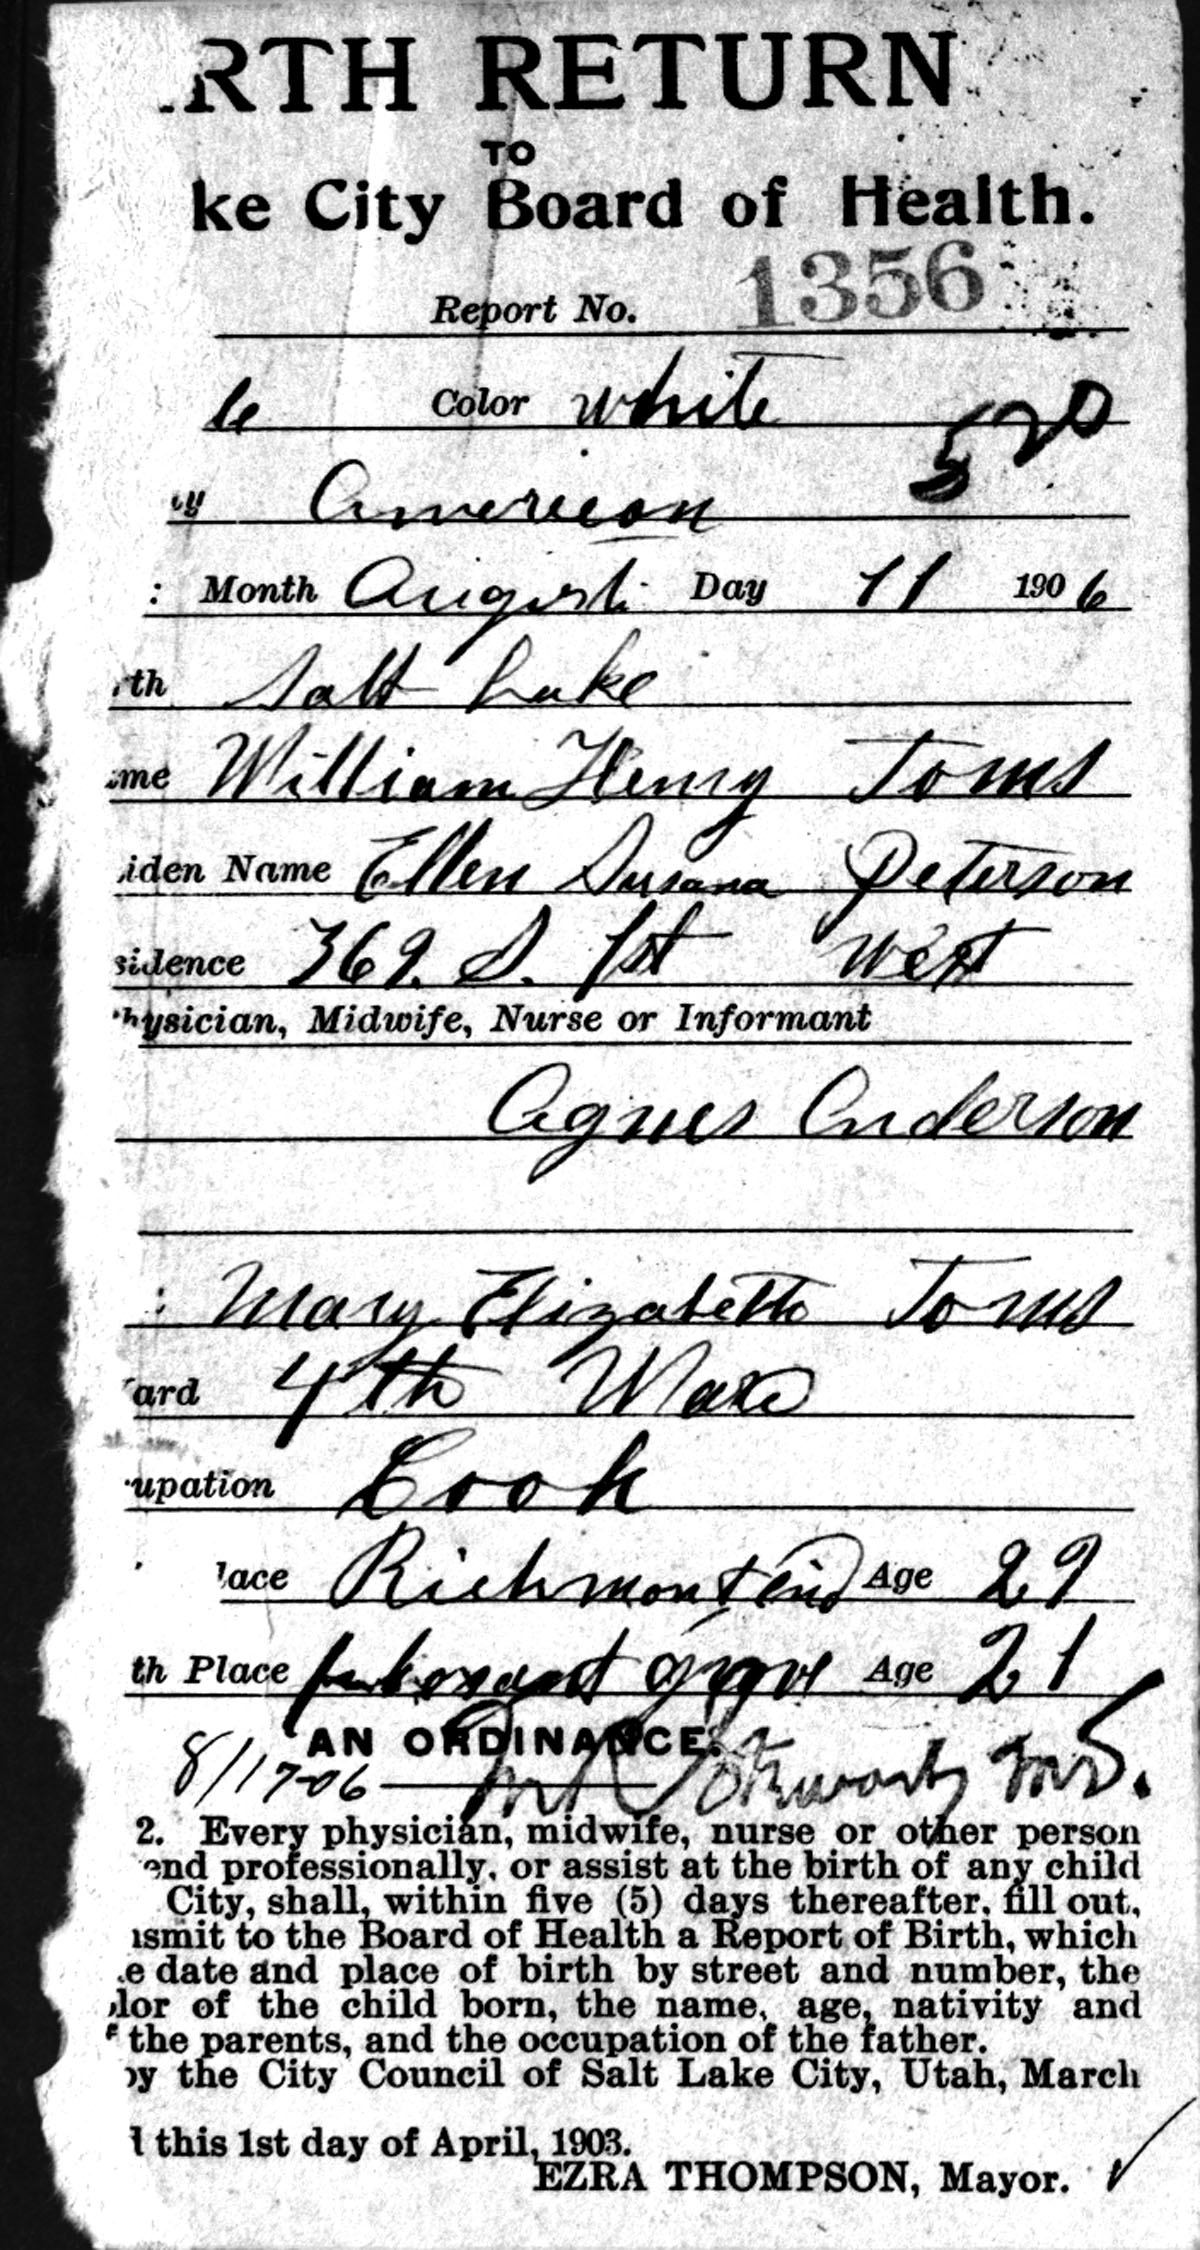 RTH RETURN
TO
ke City Board of Health.
Report No. 1356
le Color white
520
ty American
: Month August Day 11 1906
rth Salt Lake
me William Henry Toms
iden Name Ellen Susana Peterson
sidence 369. S. 1st West
Physician, Midwife, Nurse or Informant
Agnes Anderson
: Mary Elizabeth Toms
ard 4th
upation Cook
lace Richmont Age 29
th Place Age 21
AN ORDINANCE.
8/17-06
2. Every physician, midwife, nurse or other person
end professionally, or assist at the birth of any child
City, shall, within five (5) days thereafter, fill out,
nsmit to the Board of Health a Report of Birth, which
e date and place of birth by street and number, the
lor of the child born, the name, age, nativity and
f the parents, and the occupation of the father.
by the City Council of Salt Lake City, Utah, March
l this 1st day of April, 1903.
EZRA THOMPSON, Mayor.